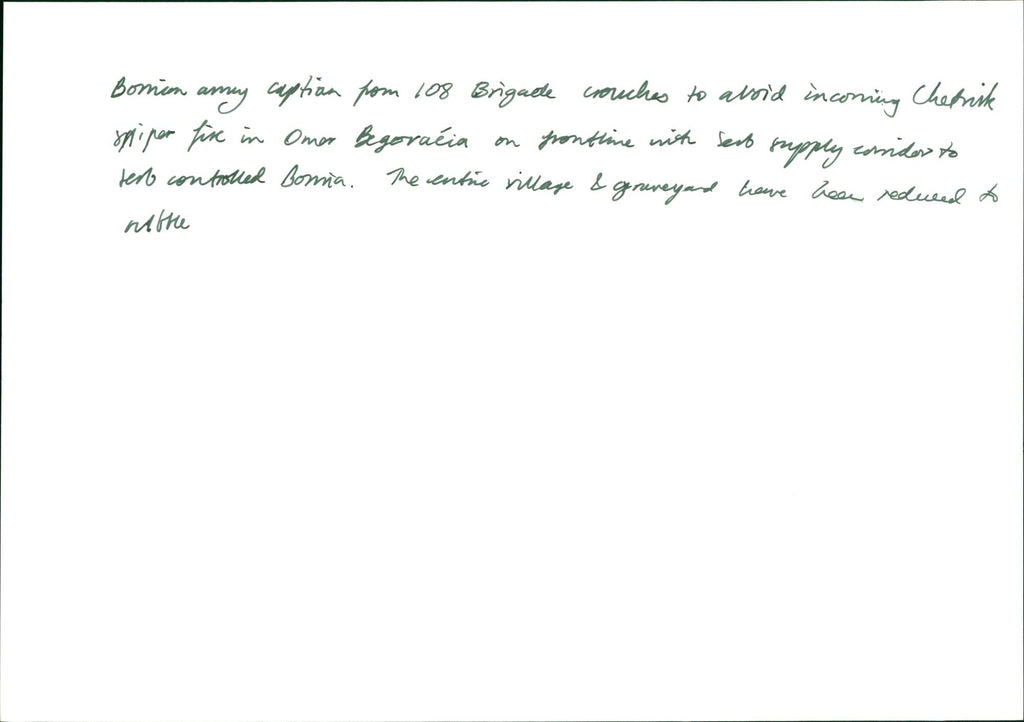 Bosnian army captian from 108 Brigade crouches to avoid incoming Chetnik
sniper fire in Omer Begovaćia on frontline with Serb supply corridor to
serb controlled Bosnia. The entire village & graveyard have been reduced to
rubble